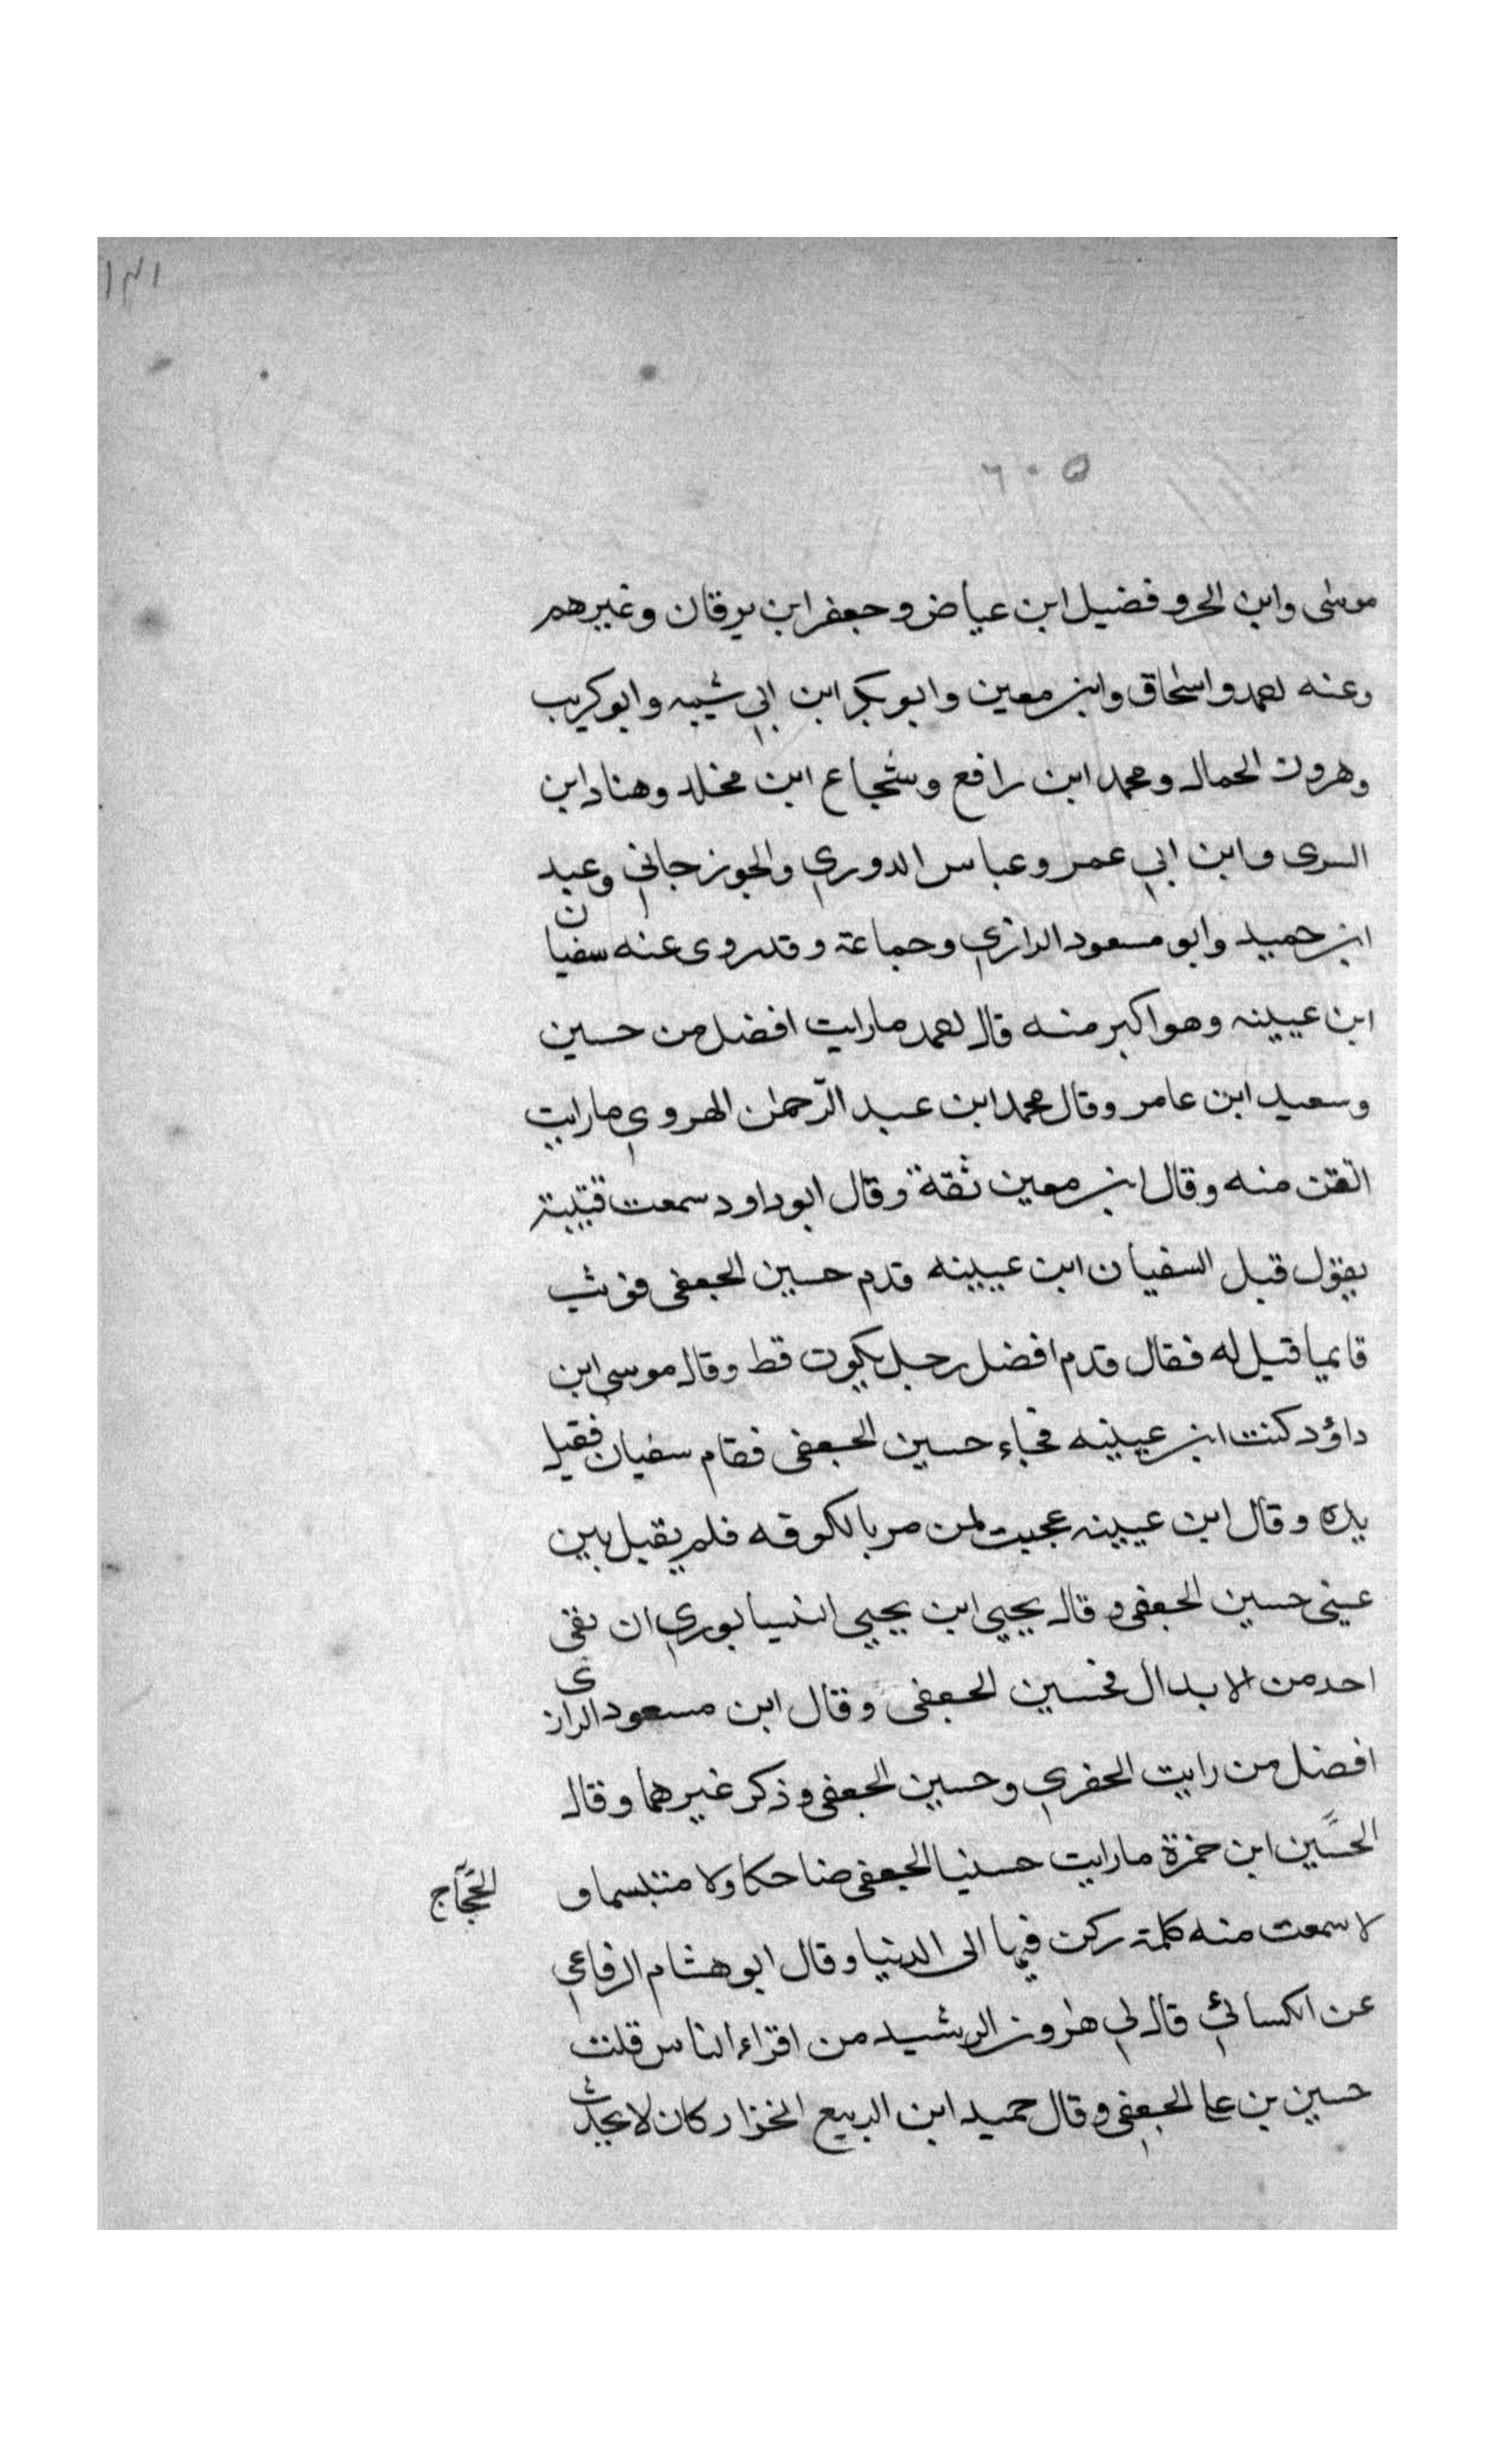 ١٣١
٦٠٥
موسى وابن الحر وفضيل ابن عياض وجعفر ابن برقان وغيرهم
وعنه احمد واسحاق وابن معين وابو بكر ابن ابي شيبه وابو كريب
وهرون الحمال ومحمد ابن رافع وشجاع ابن مخلد وهناد ابن
السرى وابن ابي عمر وعباس الدوري والجوزجاني وعبد
ابن حميد وابو مسعود الرازي وجماعة وقد روى عنه سفيان
ابن عيينه وهو اكبر منه قال احمد ما رايت افضل من حسين
وسعيد ابن عامر وقال محمد ابن عبد الرّحمن الهروي ما رايت
اتقن منه وقال ابن معين ثقة وقال ابو داود سمعت قتيبة
يقول قيل السفيان ابن عيينه قدم حسين الجعفى فوثب
قايما قيل له فقال قدم افضل رجل يكون قط وقال موسى ابن
داؤد كنت ابن عيينه فجاء حسين الجعفى فقام سفيان فقبل
يده وقال ابن عيينه عجبت لمن مر بالكوفه فلم يقبل بين
عينى حسين الجعفى وقال يحيى ابن يحيى النيسابوري ان بقى
احد من الابدال فحسين الجعفى وقال ابن مسعود الرازى
افضل من رايت الحفري وحسين الجعفى وذكر غيرهما وقال
الحسين ابن حمزة ما رايت حسنيا الجعفى ضاحكا ولا متبسما و
الحجّاج
لا سمعت منه كلمة ركن فيها الى الدنيا وقال ابو هشام الرفاعي
عن الكسائي قال لي هرون الرشيد من اقراء الناس قلت
حسين بن على الجعفي وقال حميد ابن الربيع الخزار كان لا يحدث